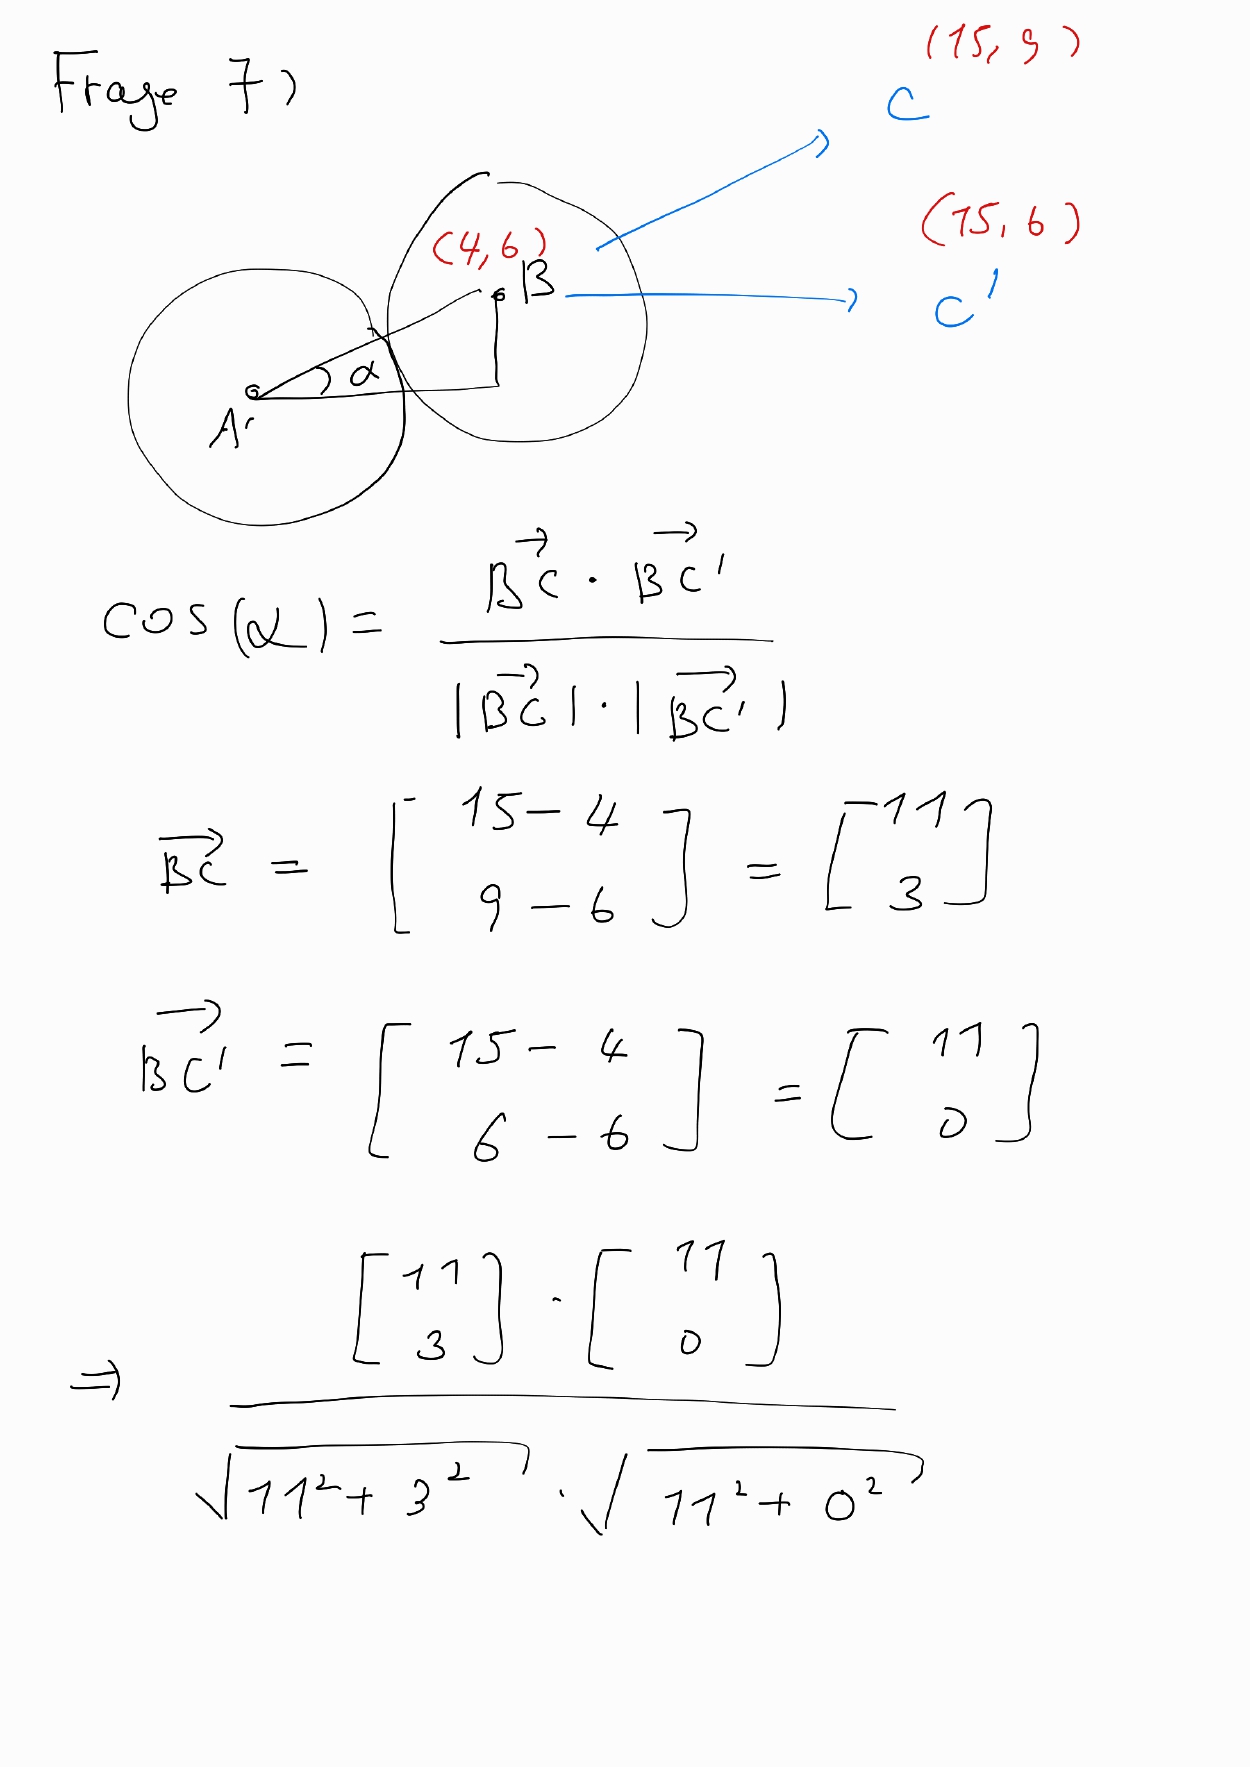 Frage 7)
(15, 9)
C
(15, 6)
C'
(4, 6)
B
α
A
cos(α) = (BC→ · BC'→) / (|BC→| · |BC'→|)
BC→ = [15 - 4
9 - 6] = [11
3]
BC'→ = [15 - 4
6 - 6] = [11
0]
⇒ [11
3] · [11
0]
√(11² + 3²) · √(11² + 0²)